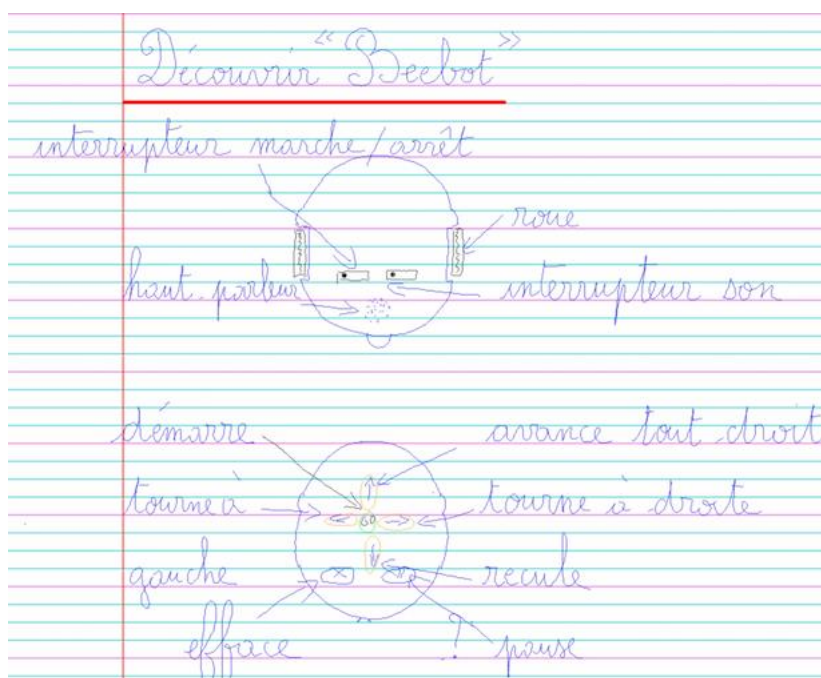 Découvrir "Beebot"
interrupteur marche/arrêt
roue
haut-parleur
interrupteur son
démarre
avance tout droit
tourne à gauche
GO
tourne à droite
recule
efface
?
pause